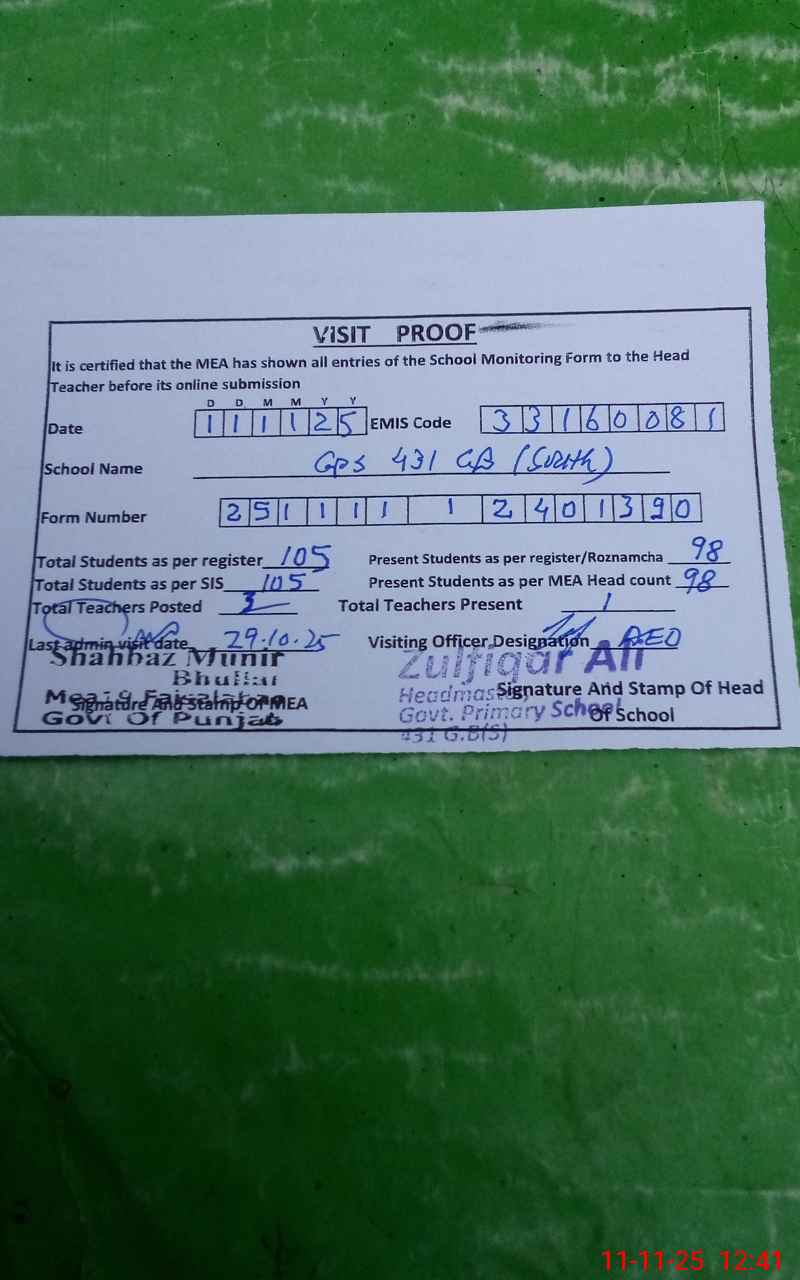 VISIT PROOF
It is certified that the MEA has shown all entries of the School Monitoring Form to the Head
Teacher before its online submission
D D M M Y Y
Date 1 1 1 1 2 5 EMIS Code 3 3 1 6 0 0 8 1
School Name GPS 431 GB (South)
Form Number 2 5 1 1 1 1 1 2 4 0 1 3 9 0
Total Students as per register 105 Present Students as per register/Roznamcha 98
Total Students as per SIS 105 Present Students as per MEA Head count 98
Total Teachers Posted 3 Total Teachers Present 1
Last admin visit date 29.10.25 Visiting Officer Designation AEO
Shahbaz Munir
Bhullar
Mea
Govt Of Punjab
Signature And Stamp Of MEA
Zulfiqar Ali
Headmas
Govt. Primary School
431 G.B(S)
Signature And Stamp Of Head
Of School
11-11-25 12:41